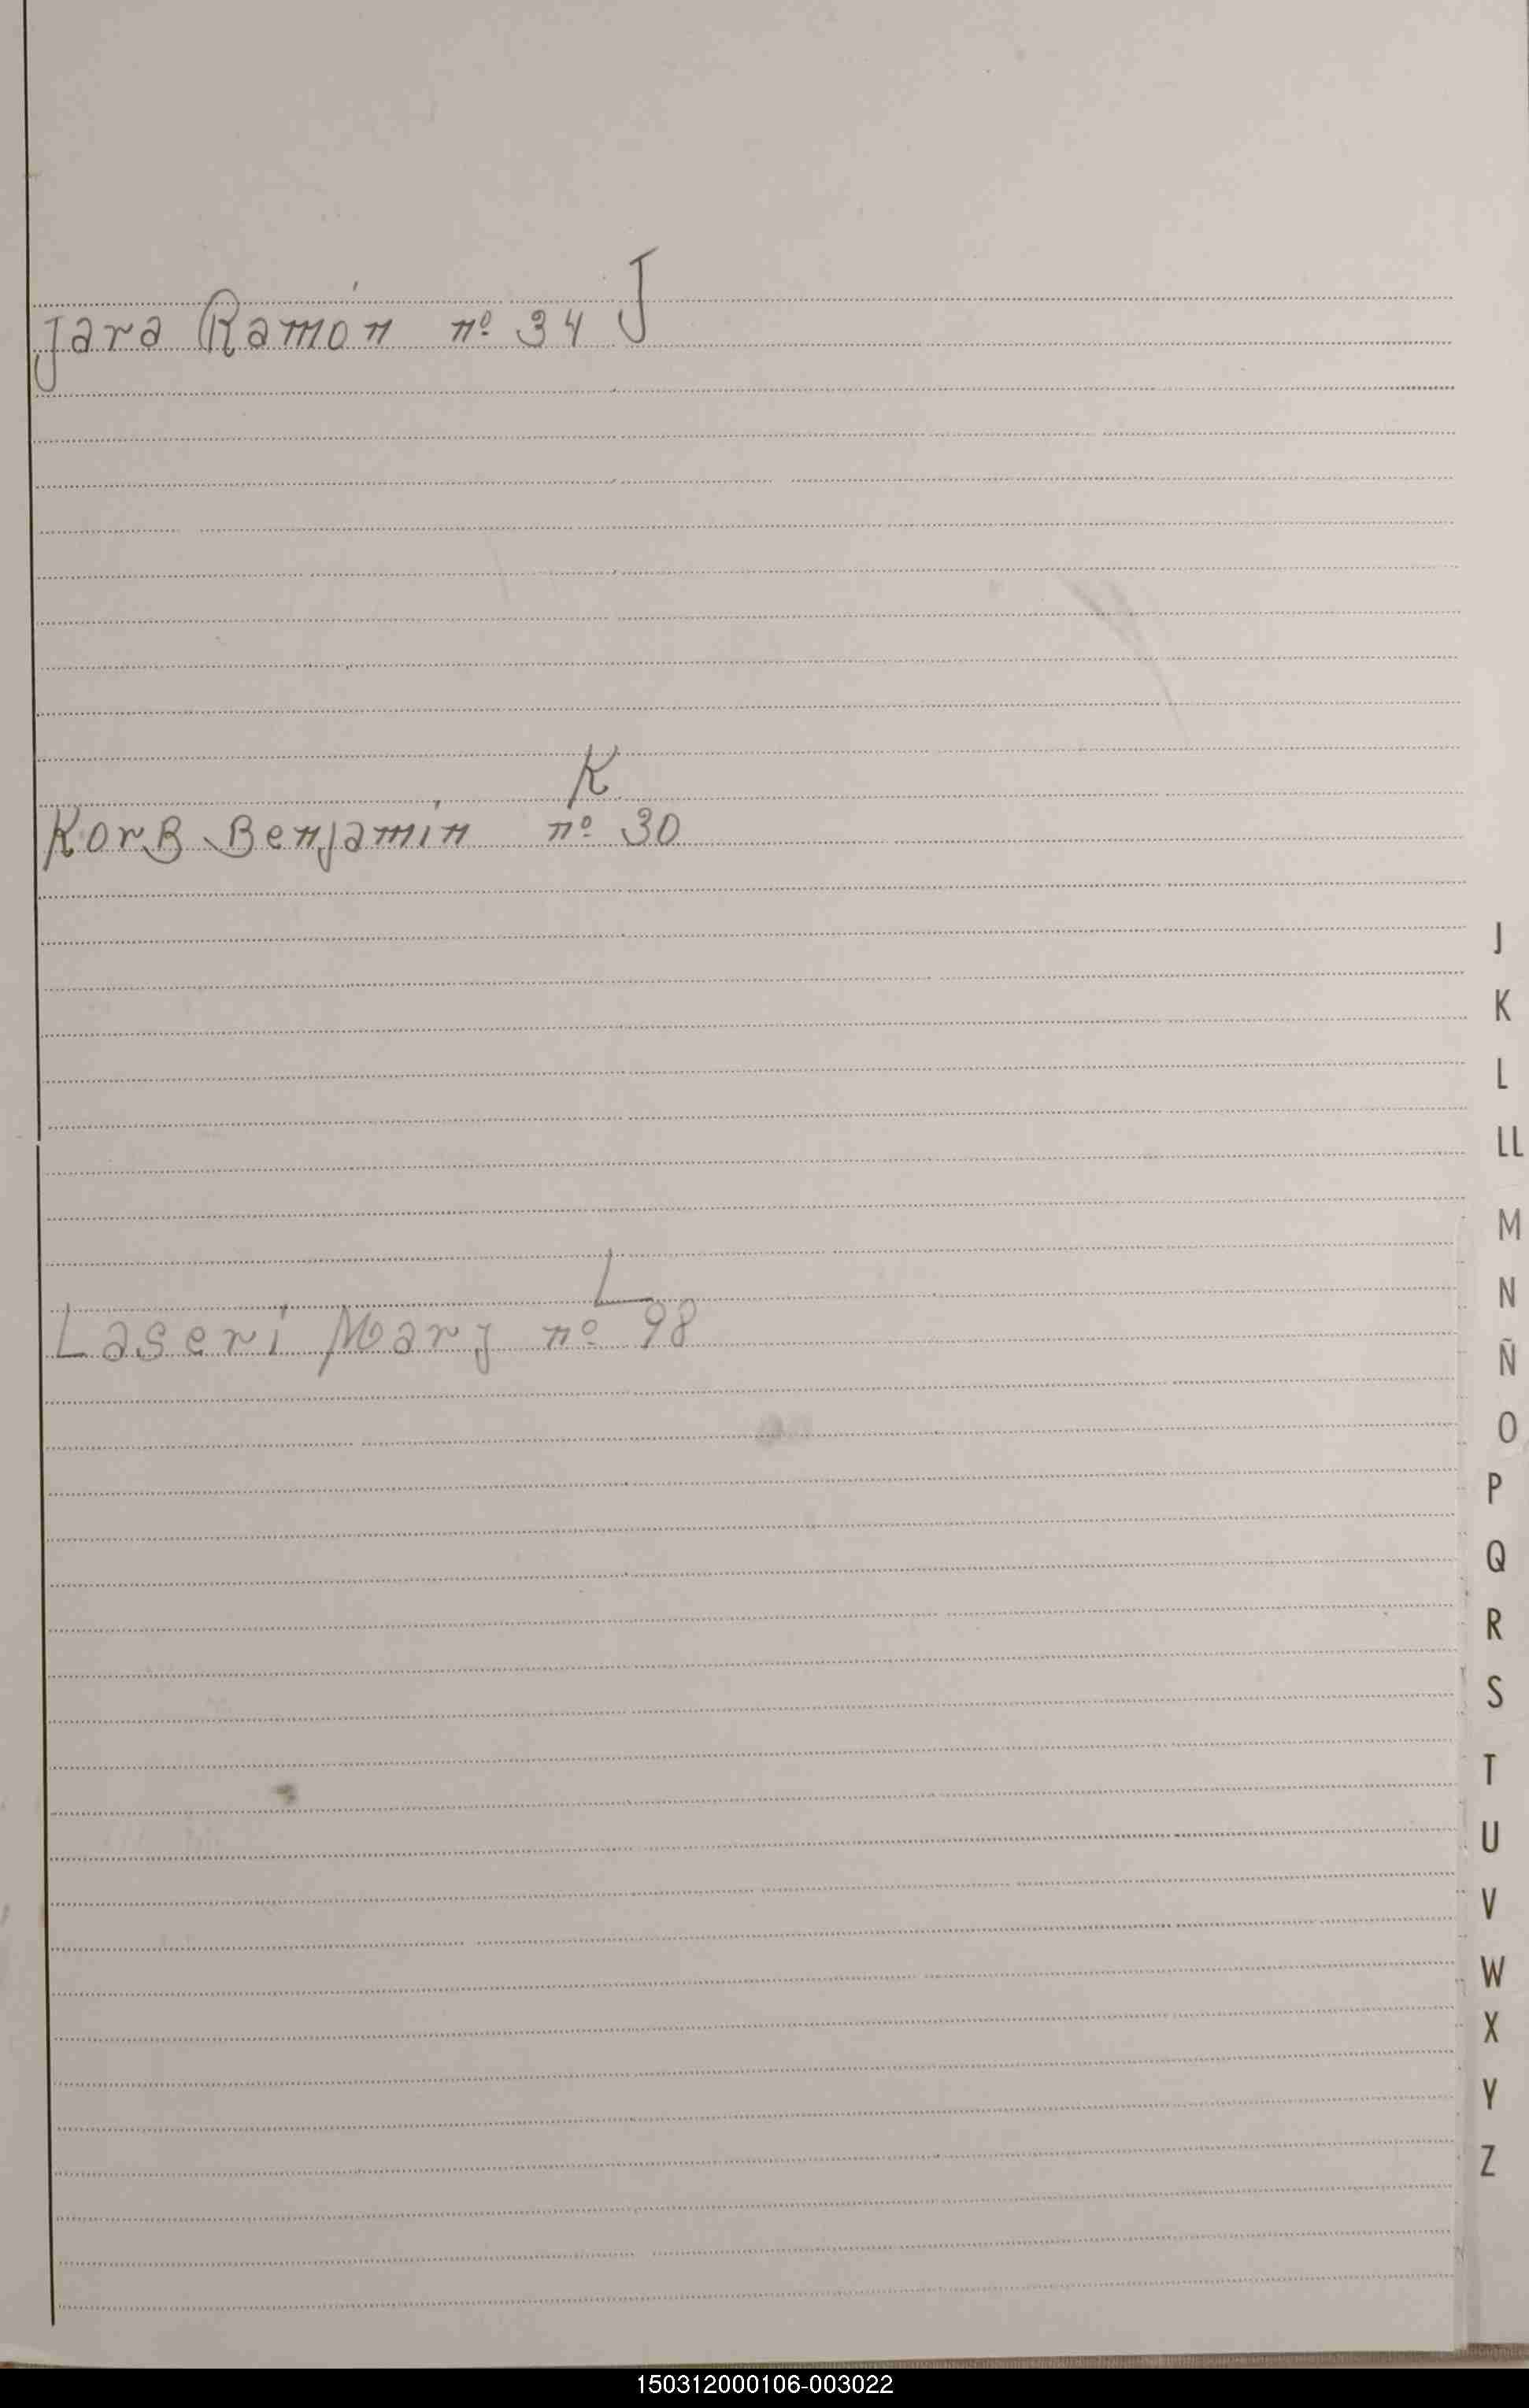 J
Jara Ramón nº 34
K
KorB Benjamín nº 30
L
Laseri Mary nº 98
J
K
L
LL
M
N
Ñ
O
P
Q
R
S
T
U
V
W
X
Y
Z
150312000106-003022